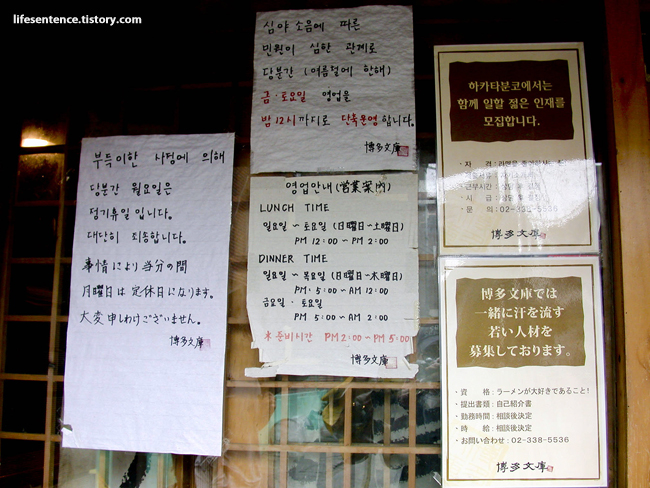 lifesentence.tistory.com
심야 소음에 따른
민원이 심한 관계로
당분간 (여름철에 한해)
금·토요일 영업을
밤 12시까지로 단축운영합니다.
博多文庫
부득이한 사정에 의해
당분간 월요일은
정기휴일입니다.
대단히 죄송합니다.
事情により当分の間
月曜日は定休日になります。
大変申しわけございません。
博多文庫
영업안내 (営業案内)
LUNCH TIME
일요일 ~ 토요일 (日曜日~土曜日)
PM 12:00 ~ PM 2:00
DINNER TIME
일요일 ~ 목요일 (日曜日~木曜日)
PM. 5:00 ~ AM 12:00
금요일 · 토요일
PM 5:00 ~ AM 2:00
준비시간 PM 2:00 ~ PM 5:00
博多文庫
하카타분코에서는
함께 일할 젊은 인재를
모집합니다.
· 자 격 :
· 근무시간 : 상담 후 결정
· 시 급 : 상담 후 결정
· 문 의 : 02-338-5536
博多文庫
博多文庫では
一緒に汗を流す
若い人材を
募集しております。
・資 格 : ラーメンが大好きであること!
・提出書類 : 自己紹介書
・勤務時間 : 相談後決定
・時 給 : 相談後決定
・お問い合わせ : 02-338-5536
博多文庫